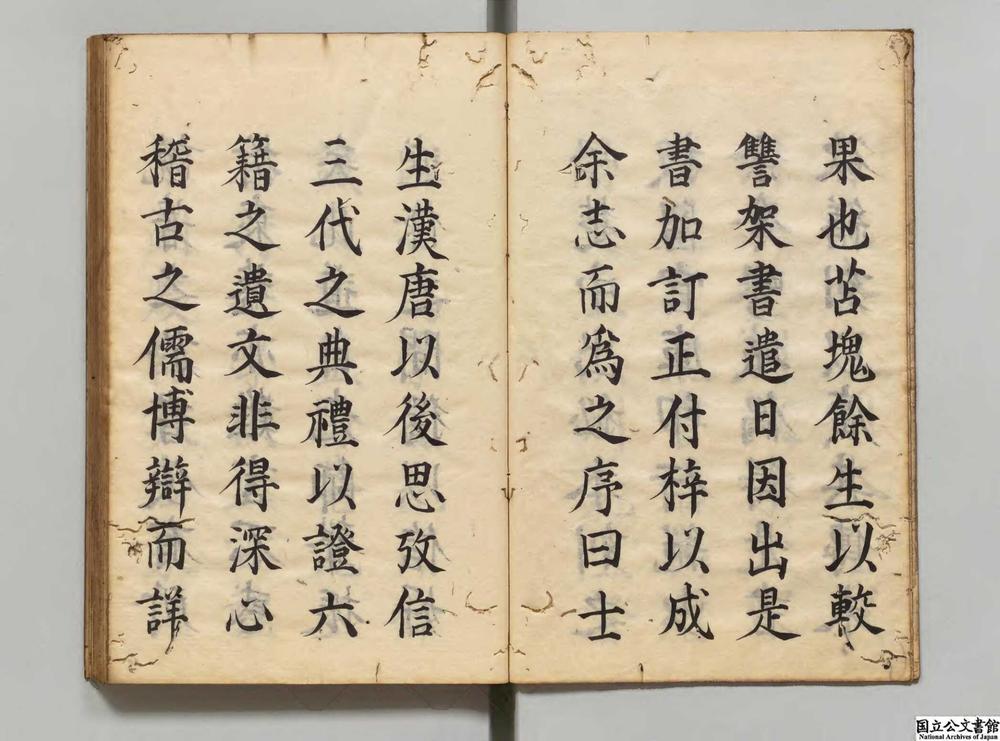 果也苫塊餘生以較
讐架書遣日因出是
書加訂正付梓以成
余志而爲之序曰士
生漢唐以後思攷信
三代之典禮以證六
籍之遺文非得深心
稽古之儒博辯而詳
国立公文書館
National Archives of Japan